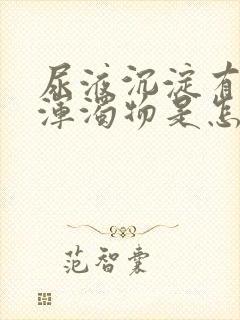 尿液沉淀有
浑浊物是怎
范智囊